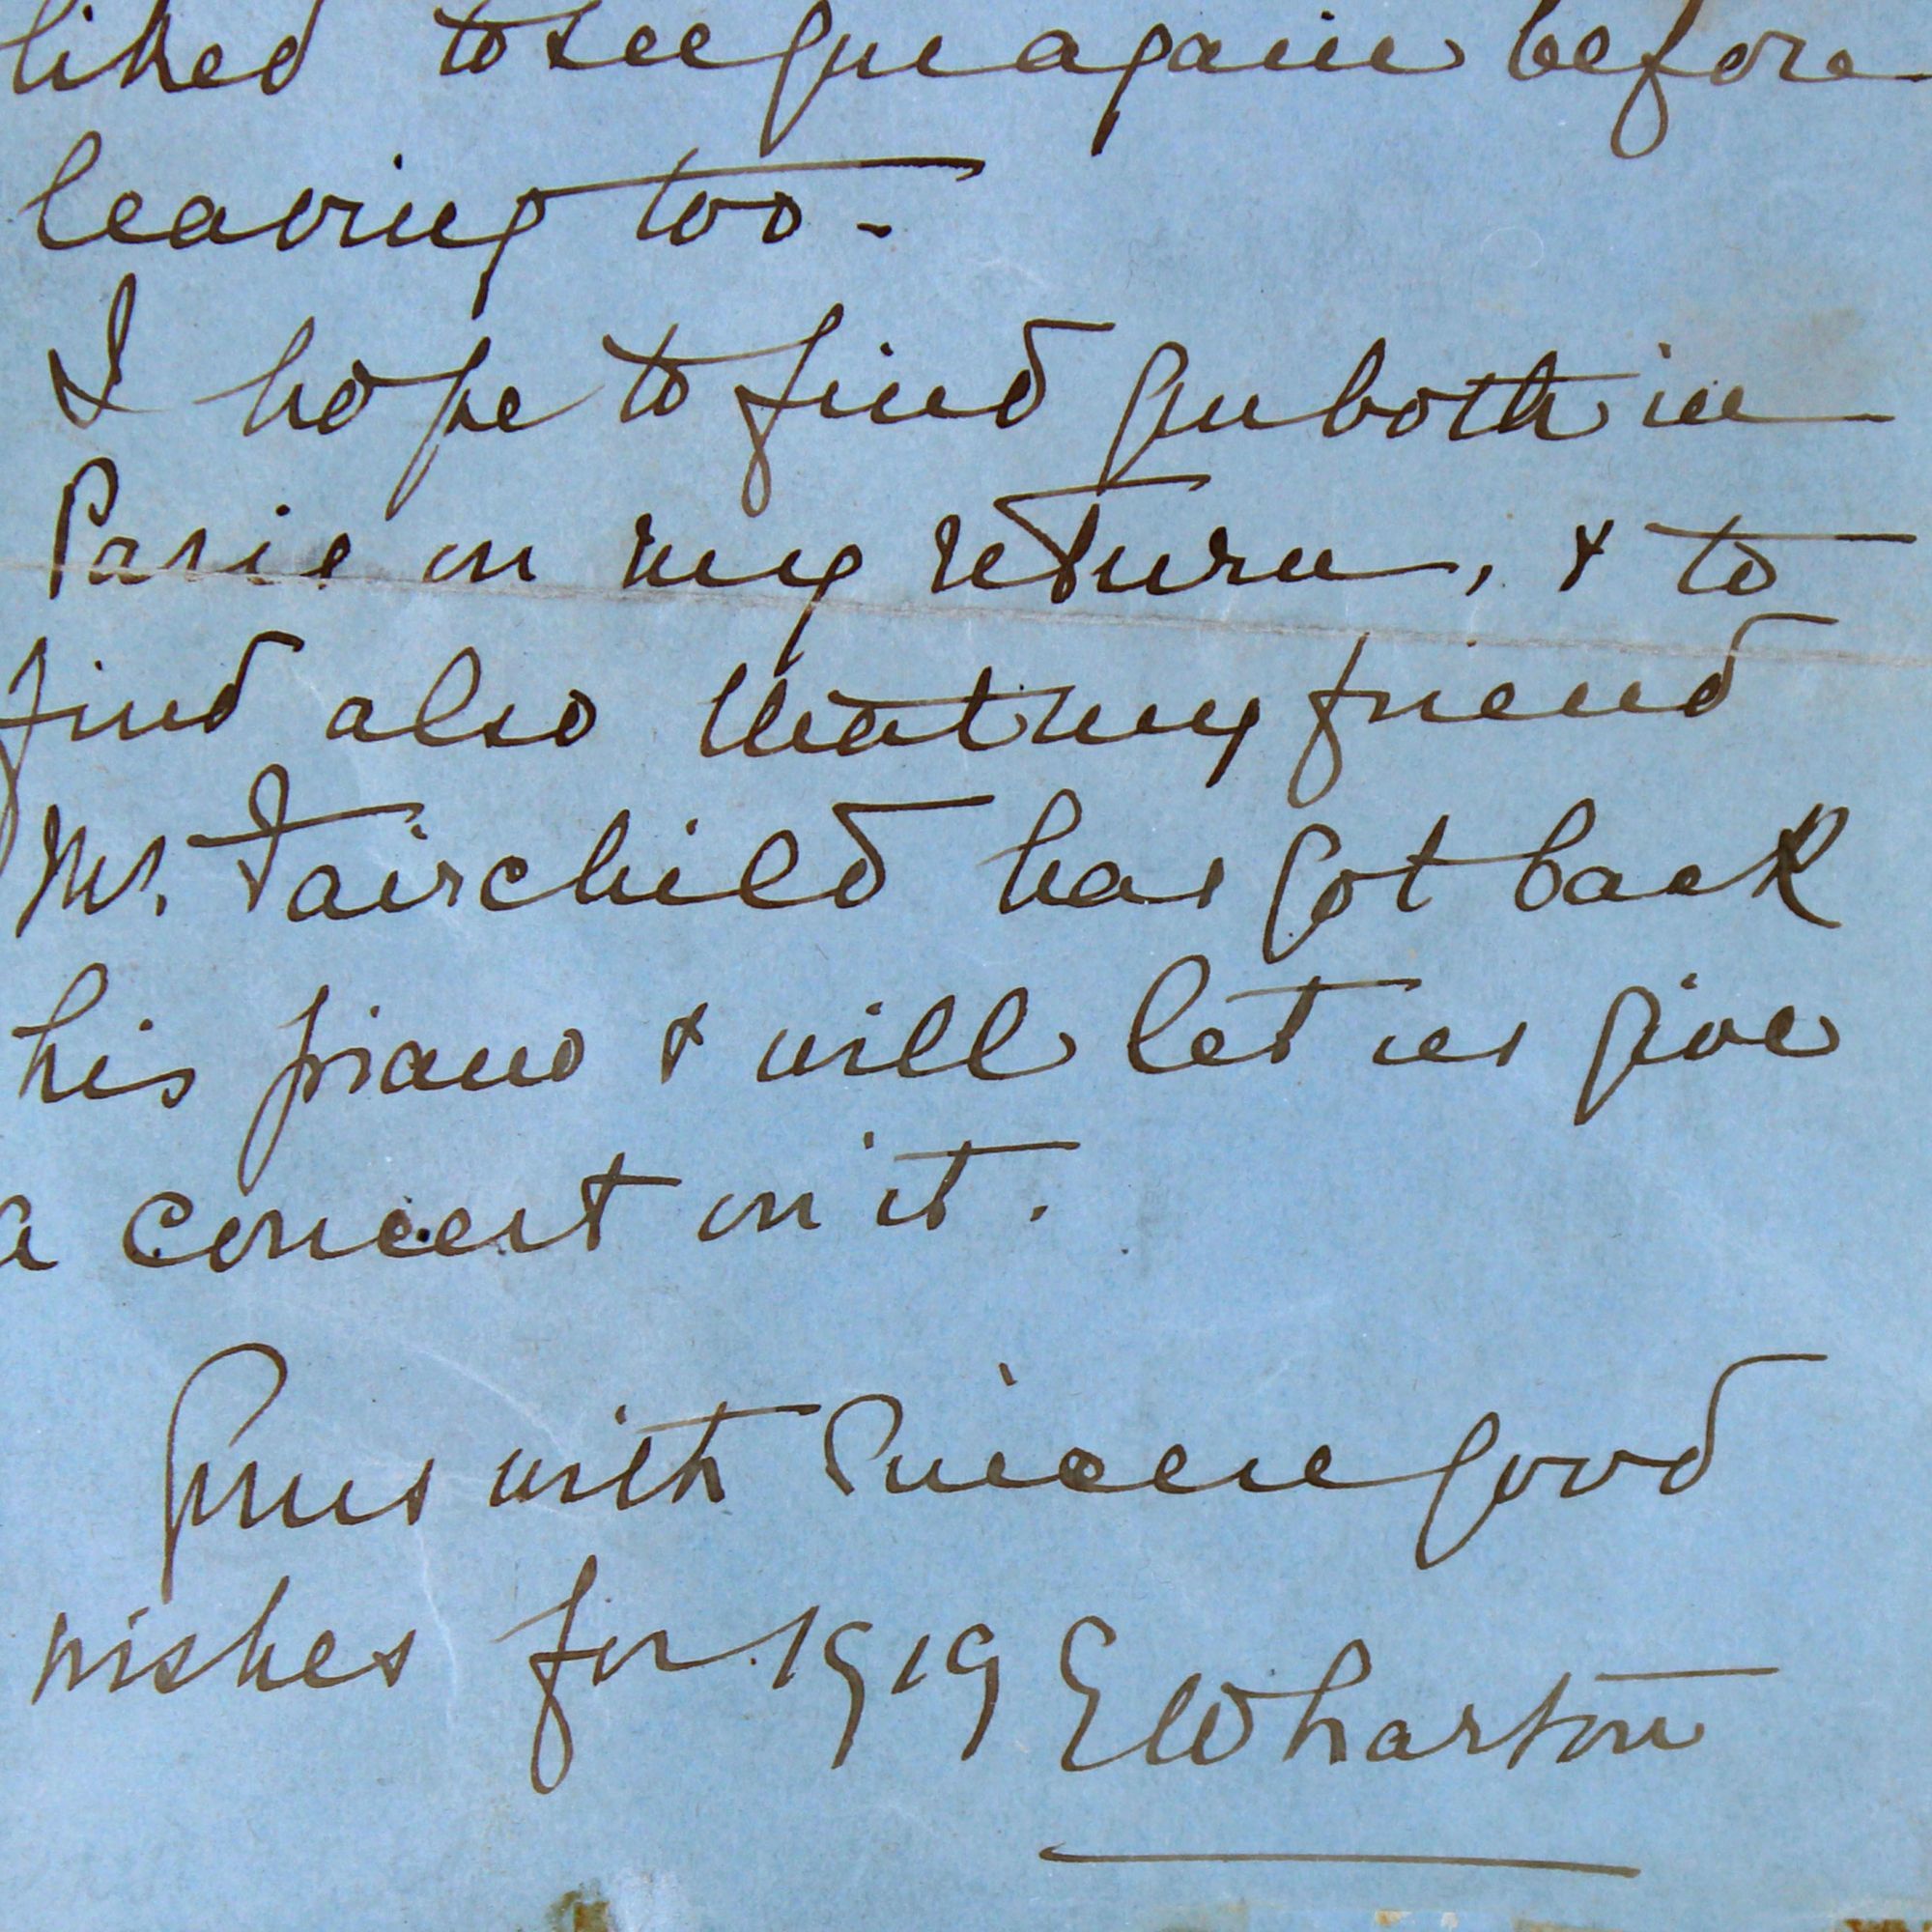 liked to see you again before
leaving too -
I hope to find you both in
Paris on my return, & to
find also that my friend
Mr. Fairchild has got back
his piano & will let us give
a concert on it.
Yours with Sincere good
wishes for 1919 EWharton